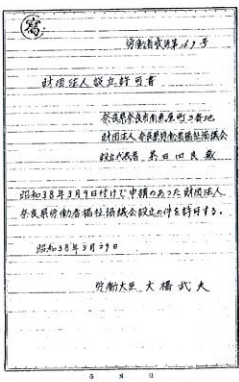 写
財団法人設立許可書
奈良県奈良市
財団法人奈良県労働者福祉協議会
設立代表者
昭和38年3月9日付けで申請のあった財団法人
奈良県労働者福祉協議会設立の件を許可する。
昭和38年3月29日
労働大臣 大橋武夫